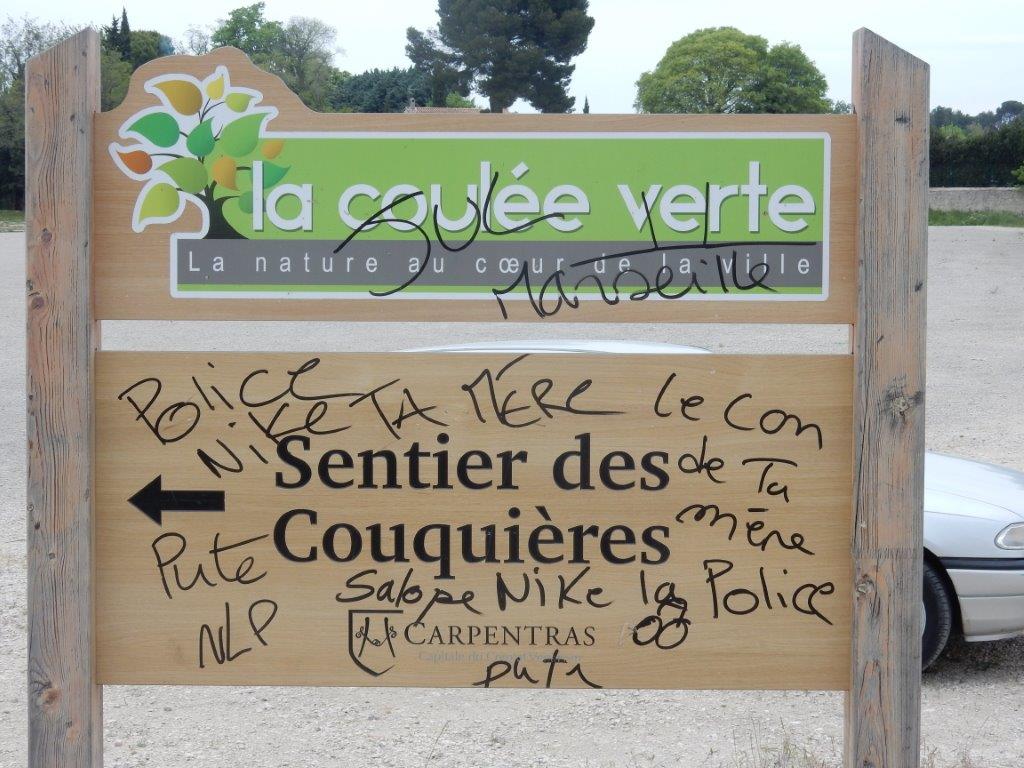 la coulée verte
La nature au cœur de la ville
Marseille
Police
NiKe TA MÈRE
le con
de Ta
mère
Sentier des
Couquières
Pute
NLP
Salope NiKe la Police
CARPENTRAS
Capitale du Comtat Venaissin